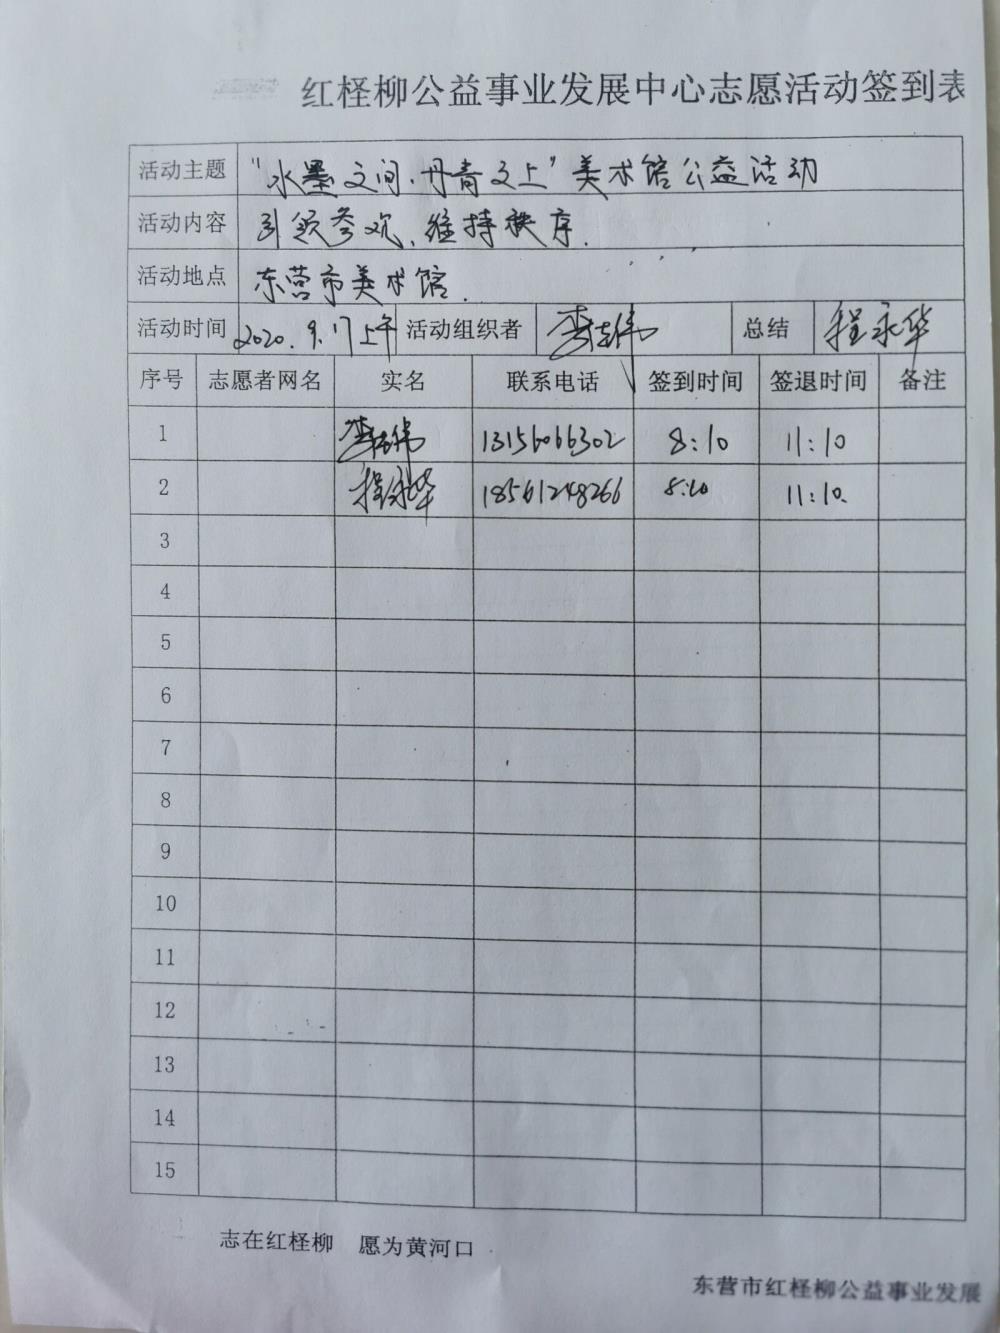 红柽柳公益事业发展中心志愿活动签到表
活动主题 "水墨之间·丹青之上"美术馆公益活动
活动内容 引领参观、维持秩序.
活动地点 东营市美术馆.
活动时间 2020.9.17上午 活动组织者 李志伟 总结 程永华
序号 志愿者网名 实名 联系电话 签到时间 签退时间 备注
1 李志伟 13156066302 8:10 11:10
2 程永华 18561248266 8:10 11:10.
3
4
5
6
7
8
9
10
11
12
13
14
15
志在红柽柳 愿为黄河口
东营市红柽柳公益事业发展